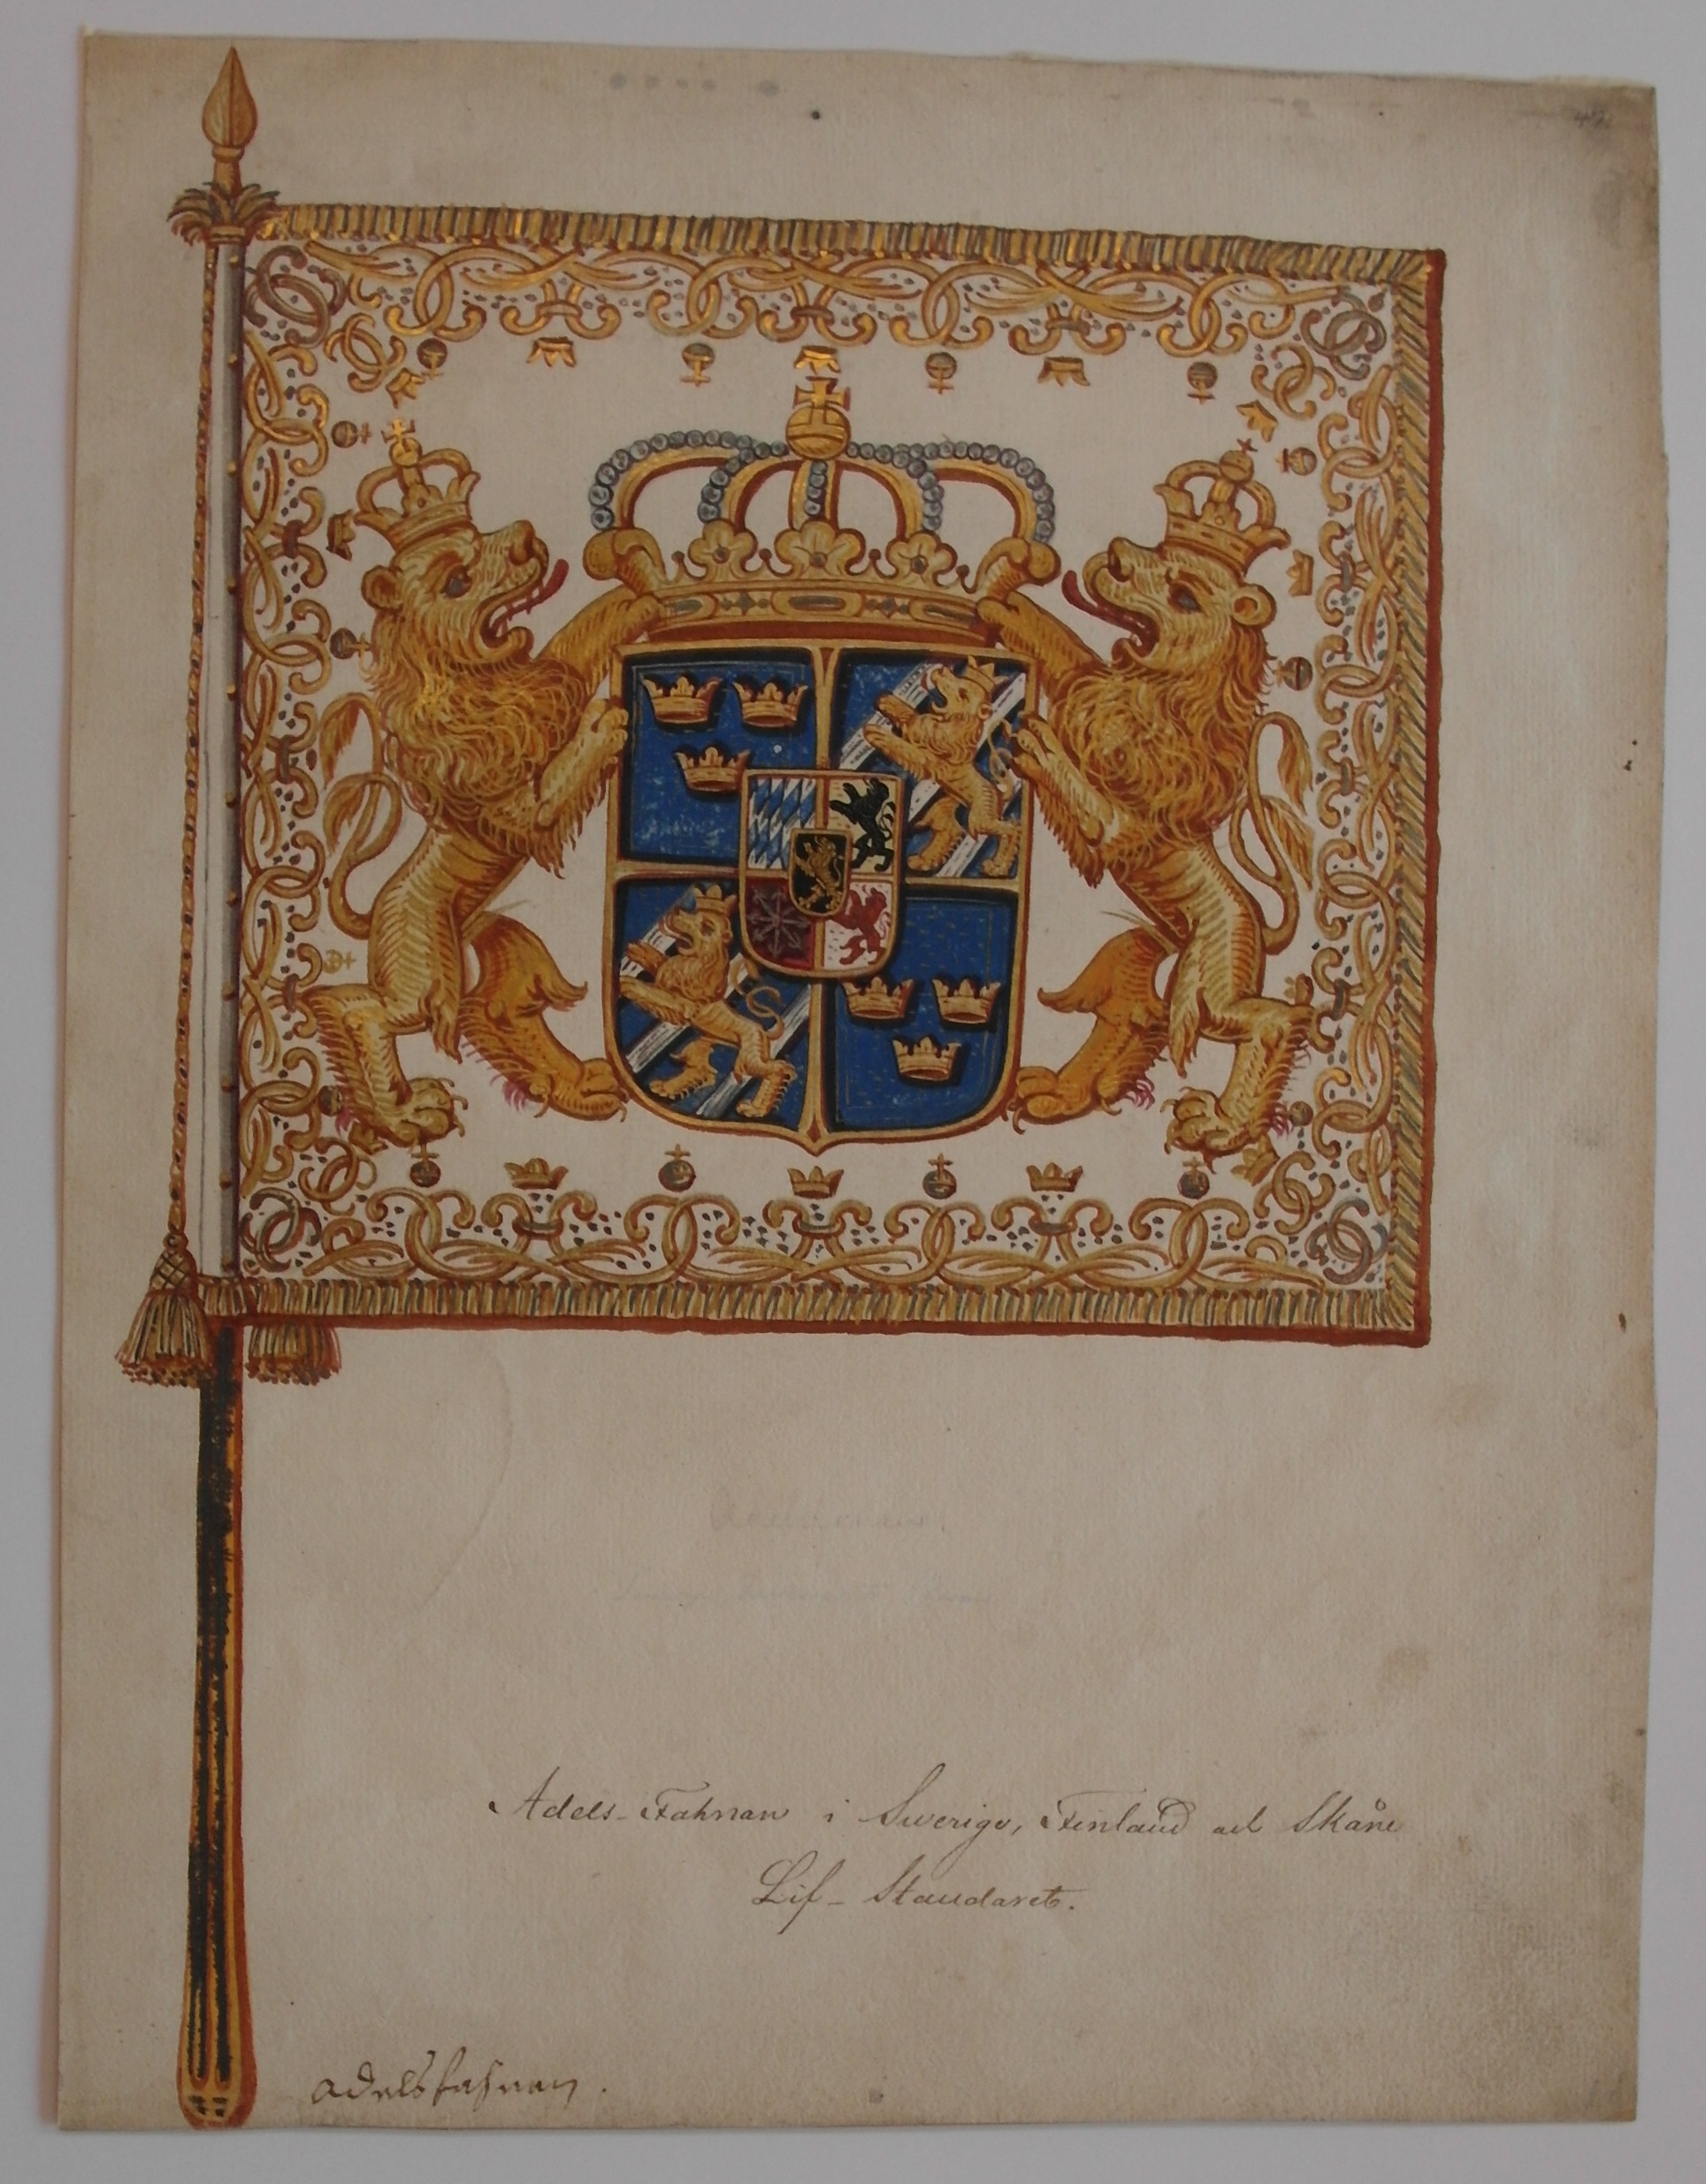 Adels-Fahnan i Swerige, Finland och Skåne
Lif-Standaret.
adelsfahnan.